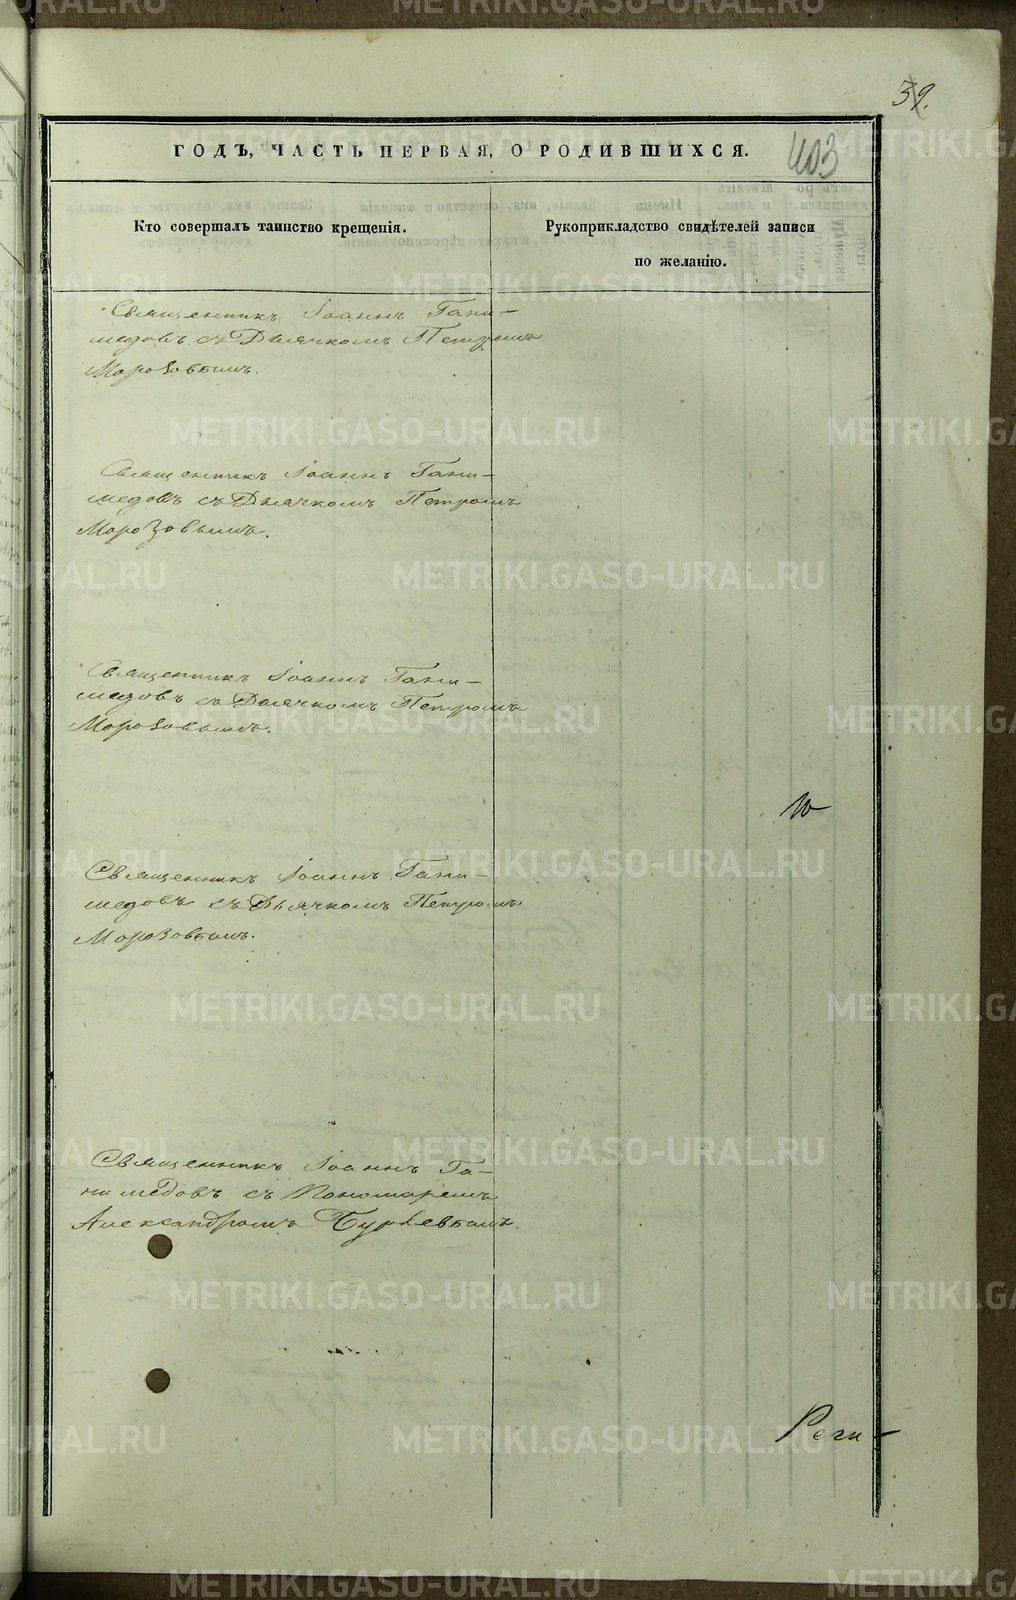 39.
403
ГОДЪ, ЧАСТЬ ПЕРВАЯ, О РОДИВШИХСЯ.
Кто совершалъ таинство крещенія.
Рукоприкладство свидѣтелей записи
по желанію.
Священникъ Іоаннъ Гани-
медовъ съ Дьячкомъ Петромъ
Морозовымъ.
Священникъ Іоаннъ Гани-
медовъ съ Дьячкомъ Петромъ
Морозовымъ.
Священникъ Іоаннъ Гани-
медовъ съ Дьячкомъ Петромъ
Морозовымъ.
Священникъ Іоаннъ Гани-
медовъ съ Дьячкомъ Петромъ
Морозовымъ.
Священникъ Іоаннъ Га-
нимедовъ съ Пономаремъ
Александромъ
METRIKI.GASO-URAL.RU